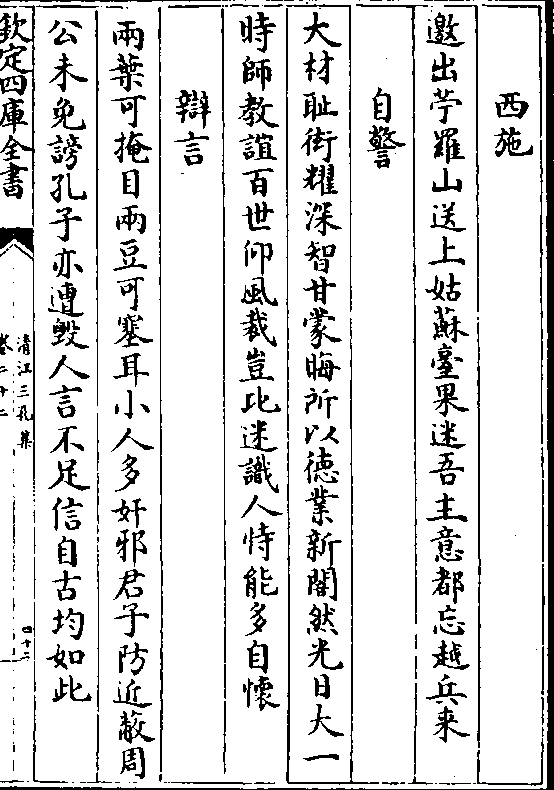 西施
邀出苧羅山送上姑蘇臺果迷吾主意都忘越兵来
自警
大材耻衒耀深智甘蒙晦所以徳業新闇然光日大一
時師教誼百世仰風裁豈比迷識人恃能多自懐
辯言
兩葉可掩目兩豆可塞耳小人多奸邪君子防近蔽周
公未免謗孔子亦遭毀人言不足信自古均如此
欽定四庫全書
清江三孔集
卷二十二